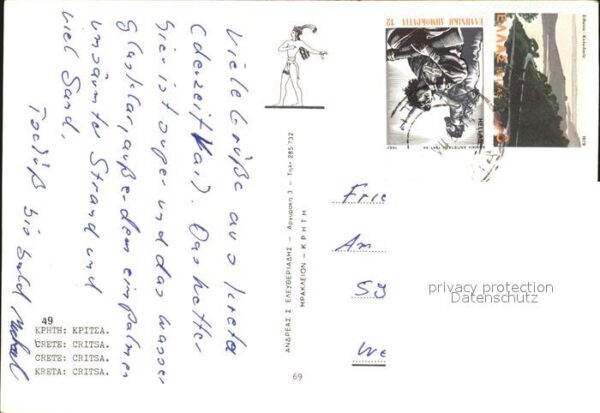 Viele Grüße aus Kreta
(derzeit Mai). Das Wetter
hier ist super und das Wasser
glasklar, außerdem ein palmen
umsäumte Strand und
viel Sand.
Tschüß bis bald
49
ΚΡΗΤΗ: ΚΡΙΤΣΑ.
CRETE: CRITSA.
CRETE: CRITSA.
KRETA: CRITSA.
ΑΝΔΡΕΑΣ Σ ΕΛΕΥΘΕΡΙΑΔΗΣ – Αργυρακη 3 – Τηλ. 285.732
ΗΡΑΚΛΕΙΟΝ – ΚΡΗΤΗ
69
ΕΛΛΗΝΙΚΗ ΔΗΜΟΚΡΑΤΙΑ 12
HELLAS
Frie
Am
We
privacy protection
Datenschutz